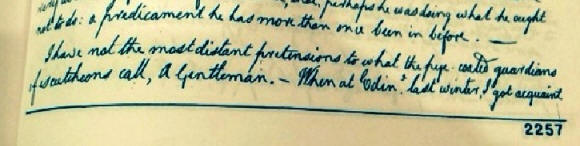 perhaps he was doing what he ought
not to do: a predicament he has more than once been in before. —
I have not the most distant pretensions to what the pye-coated guardians
of escutcheons call, A Gentleman. — When at Edinr. last winter, I got acquaint
2257